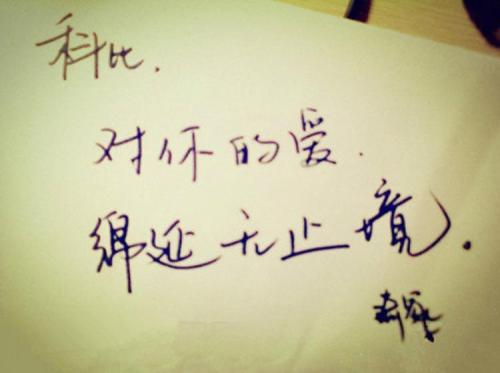 科比.
对你的爱.
绵延无止境.